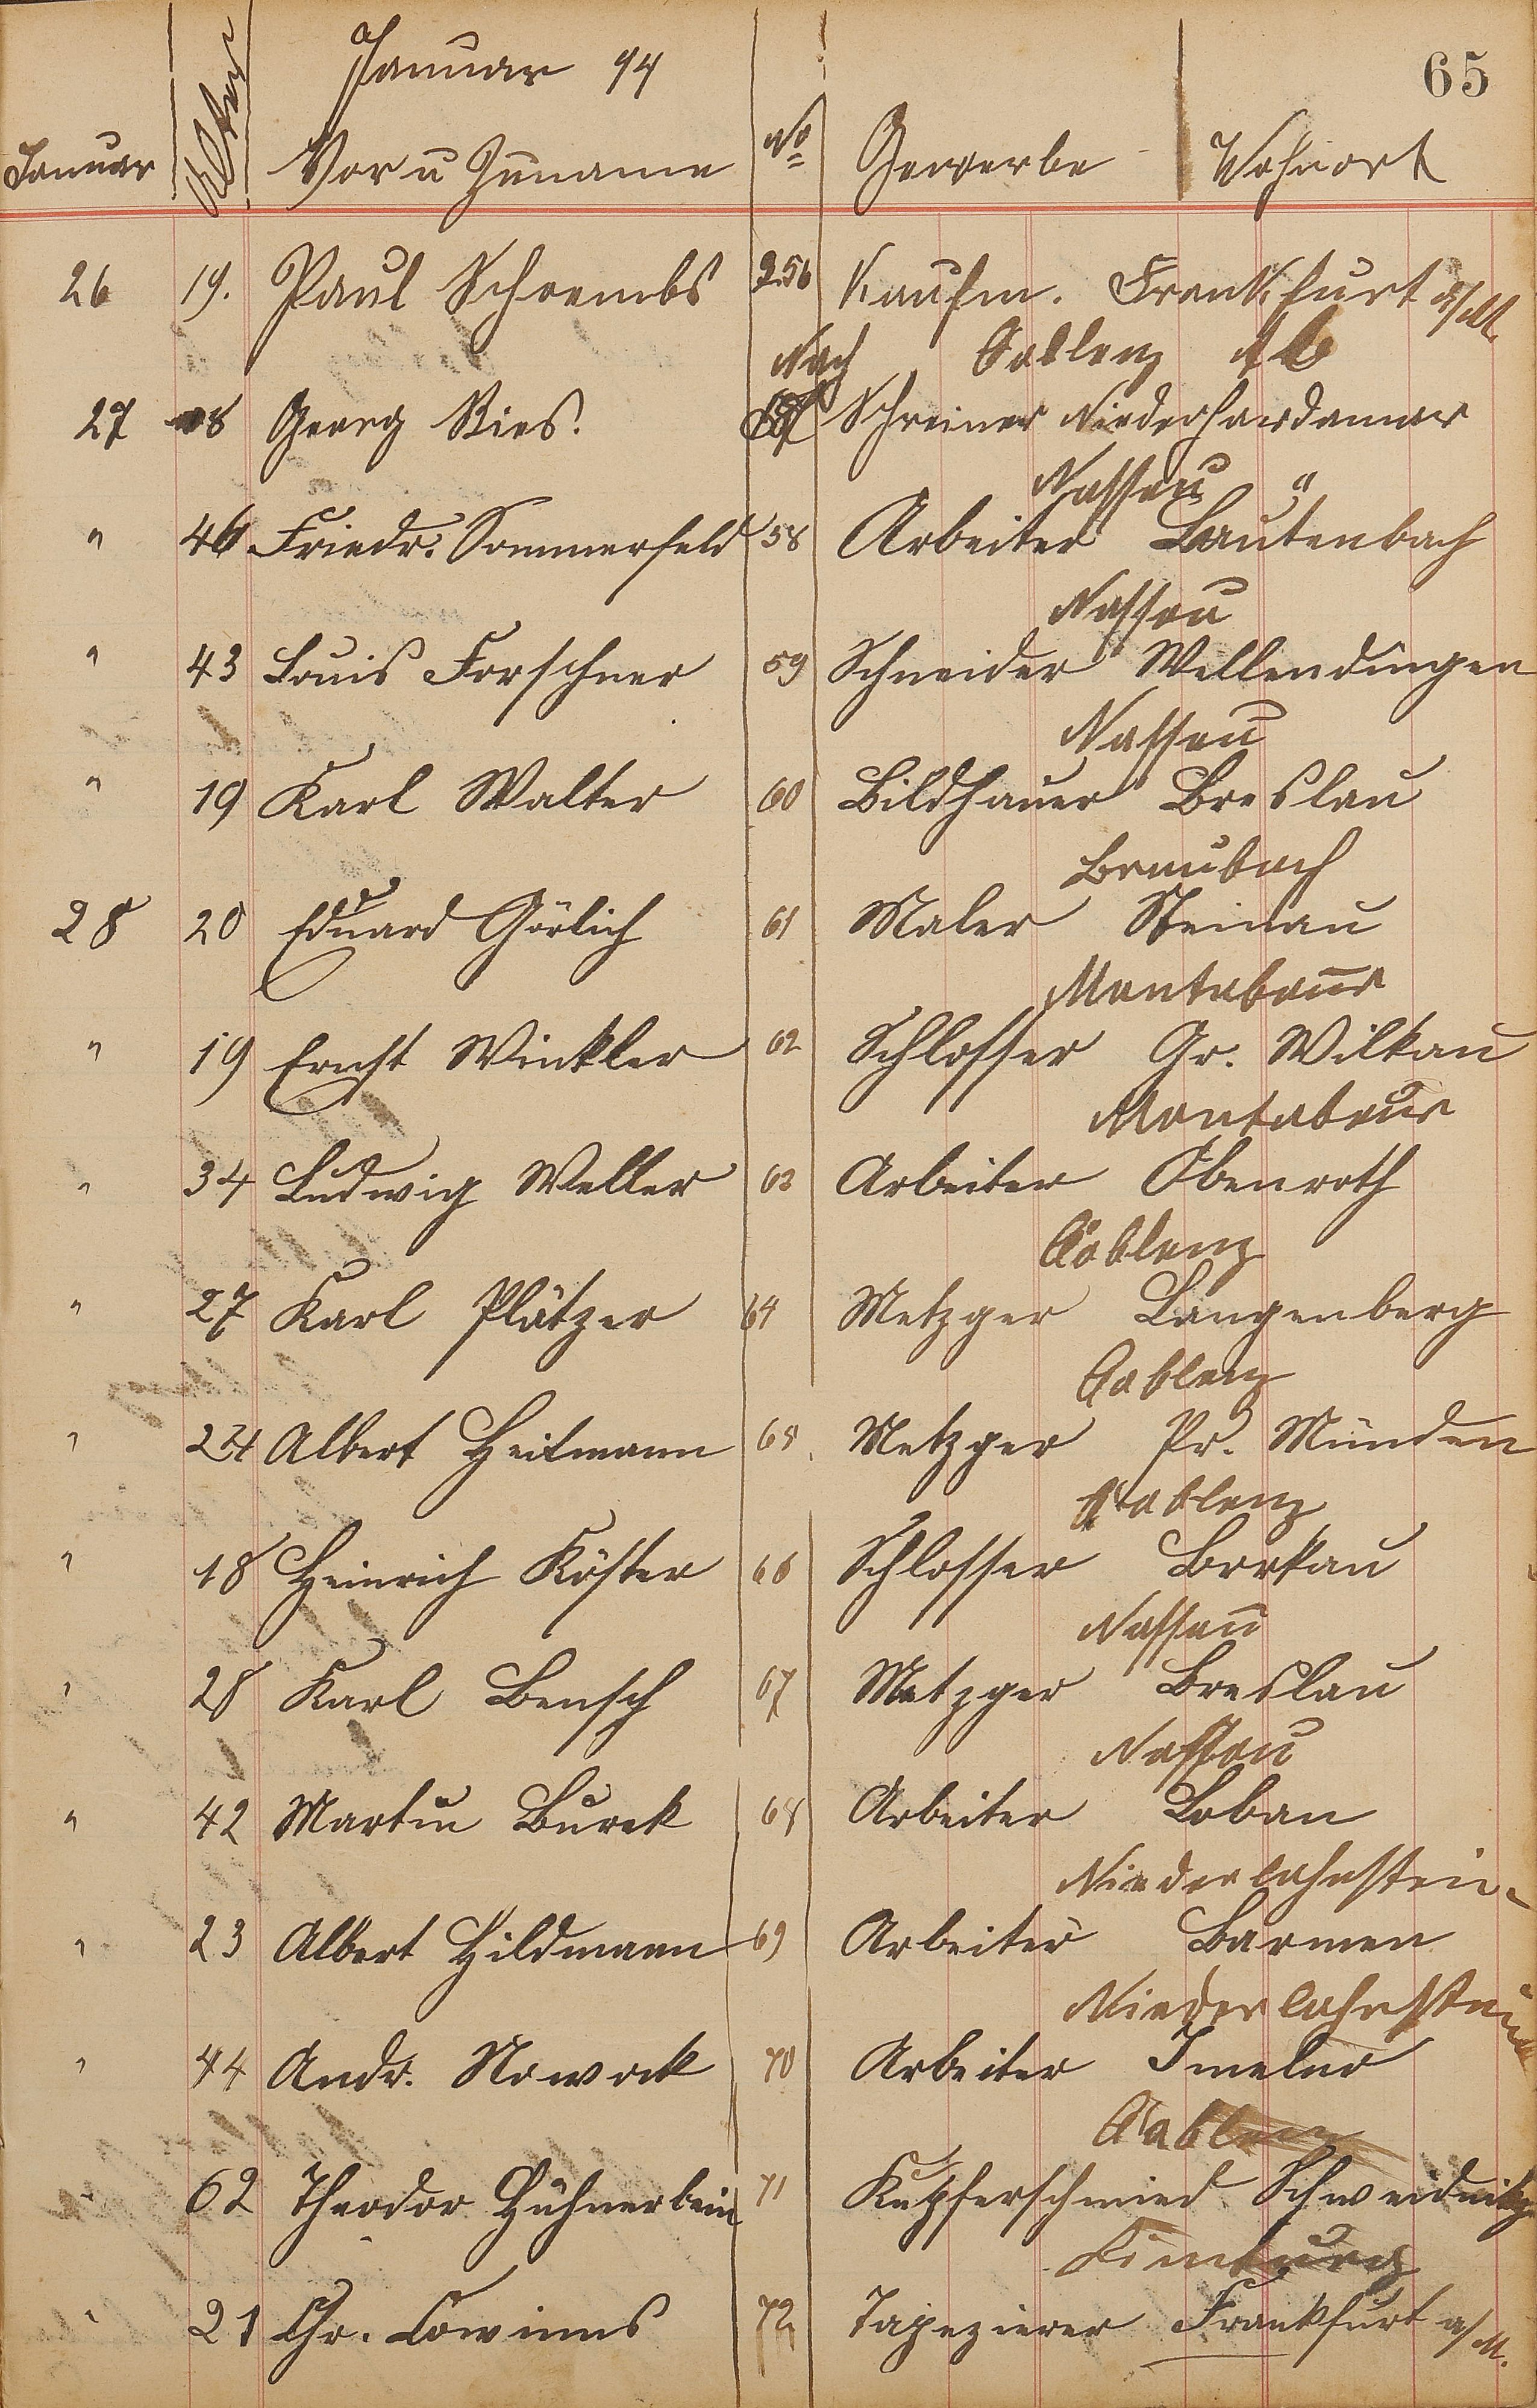 Januar 94
65
Januar Alter Vor u Zuname No Gewerbe Wohnort
26 19. Paul Schrembs 256 Kaufm. Frankfurt a/M.
Nach Coblenz ab
27 18 Georg Ries. 57 Schreiner
Nassau "
" 46 Friedr. Sommerfeld 58 Arbeiter Lautenbach
Nassau
" 43 Louis Forschner 59 Schneider Wellendingen
Nassau
" 19 Karl Walter 60 Bildhauer Breslau
Braubach
28 20 Eduard Görlich 61 Maler Steinau
Montabaur
" 19 Ernst Winkler 62 Schlosser Gr. Wilkau
Montabaur
" 34 Ludwig Weller 63 Arbeiter Obenroth
Coblenz
" 27 Karl Plätzer 64 Metzger Langenberg
Coblenz
" 24 Albert Heitmann 65 Metzger Pr. Münden
Coblenz
" 18 Heinrich Köster 66 Schlosser Borkau
Nassau
" 28 Karl Bensch 67 Metzger Breslau
Nassau
" 42 Martin Burek 68 Arbeiter Loban
Niederlahnstein
" 23 Albert Hildmann 69 Arbeiter Barmen
Niederlahnstein
" 44 Andr. Nowack 70 Arbeiter
Coblenz
" 62 Theodor Hühnerbein 71 Kupferschmied Schweidnitz
Limburg
" 21 Chr. Cowinus 72 Tapezierer Frankfurt a/M.